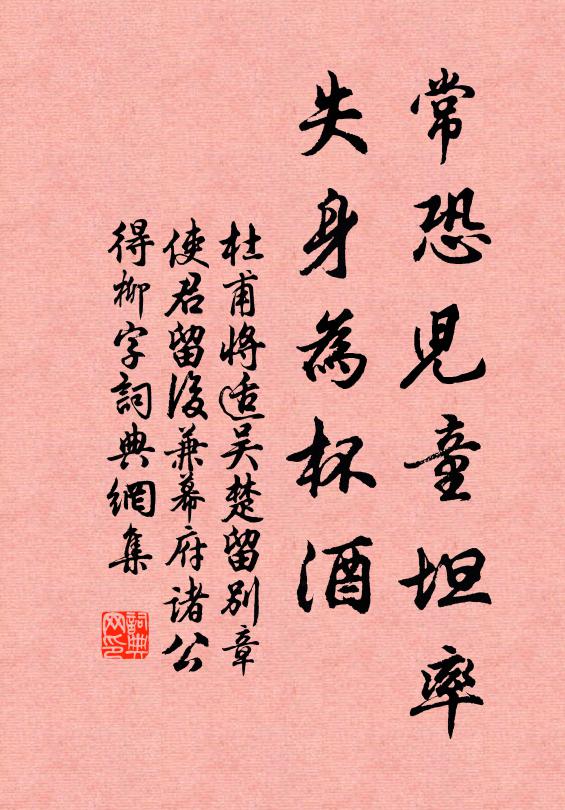 常恐児童坦率
失身為杯酒
杜甫将适吴楚留別章
使君留後兼幕府諸公
得柳字詞典網集
詞典
网印